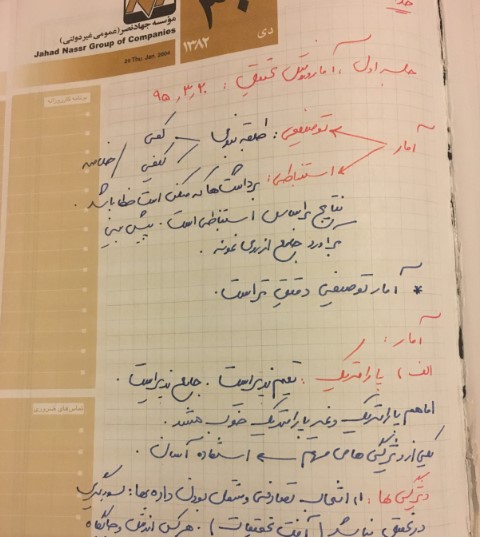 ۳۰
دی
۱۳۸۲
مؤسسه جهاد نصر (عمومی غیر دولتی)
Jahad Nassr Group of Companies
20 Thu. Jan. 2004
برنامه کار روزانه
جلسه اول، آمار و روش تحقیق: ۹۵٫۳٫۲۰
آمار
توصیفی: طبقه بندی کمی کیفی / خلاصه
استنباطی: برداشتها که ممکن است خطا باشد.
نتایج بر اساس استنباطی است. پیش بینی
برآورد جامع از روی نمونه.
* آمار توصیفی دقیق تر است.
آمار:
الف) پارامتریک: تعمیم پذیر است. جامع پذیر است.
اما هم پارامتریک و غیر پارامتریک خوب هستند.
یکی از ویژگی های مهم ← استفاده آسان.
تماس‌های ضروری
ویژگی ها: ۱) انتخاب تصادفی و مستقل بودن داده ها: سوگیری
در تحقیق نباشد (آفت تحقیقات). هر کس ارزش و جایگاه